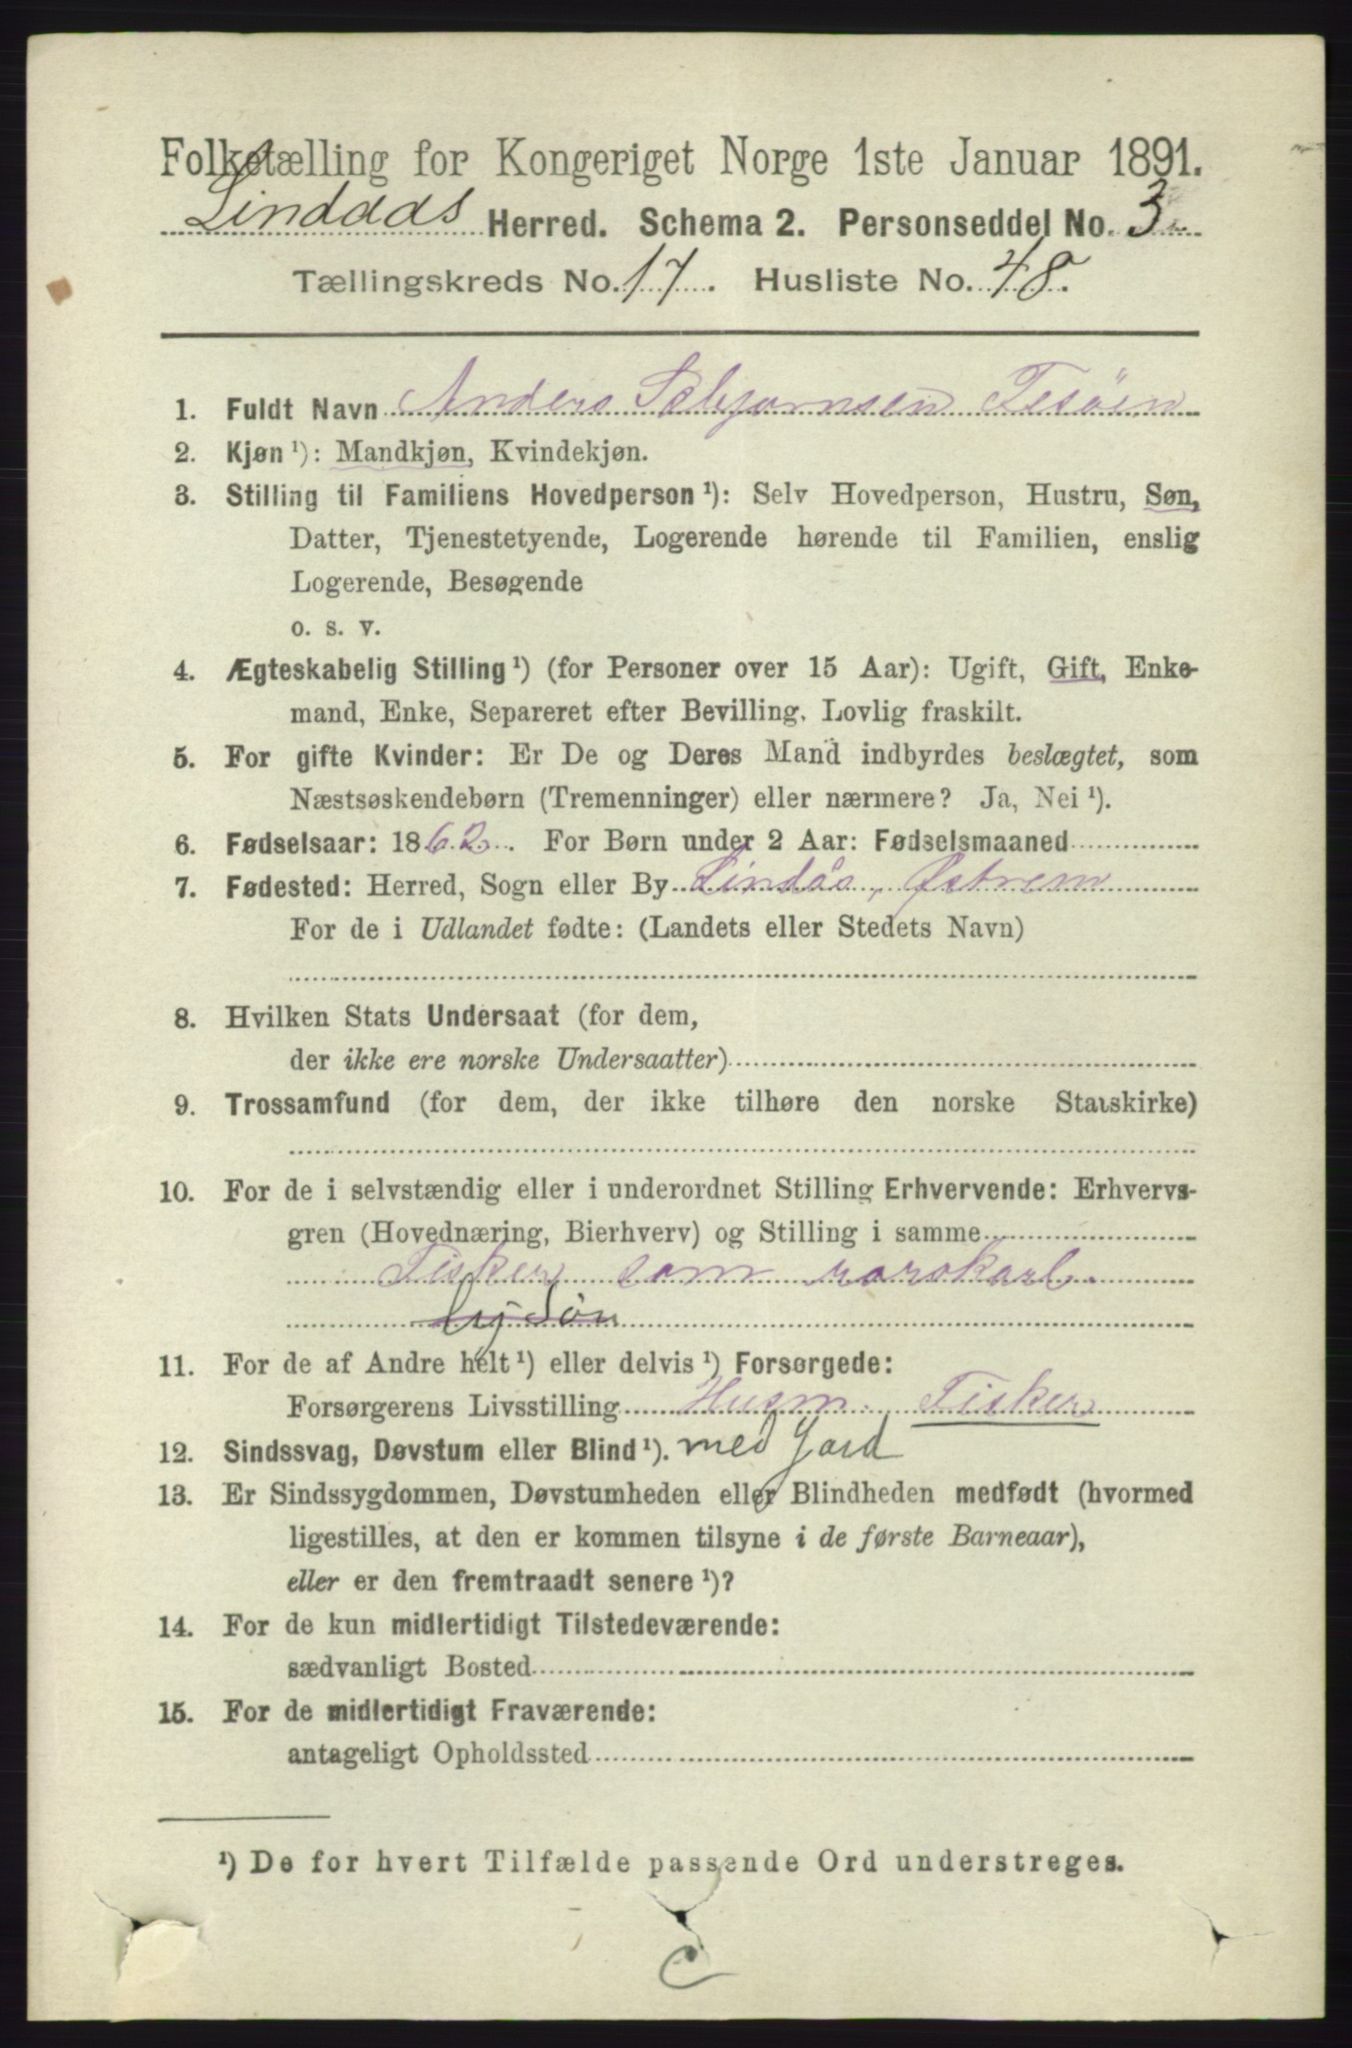 Folketælling for Kongeriget Norge 1ste Januar 1891.
Lindaas Herred. Schema 2. Personseddel No. 3
Tællingskreds No. 17. Husliste No. 48.
1. Fuldt Navn Anders Asbjørnsen Fesøen
2. Kjøn ¹): Mandkjøn, Kvindekjøn.
3. Stilling til Familiens Hovedperson ¹): Selv Hovedperson, Hustru, Søn,
Datter, Tjenestetyende, Logerende hørende til Familien, enslig
Logerende, Besøgende
o. s. v.
4. Ægteskabelig Stilling ¹) (for Personer over 15 Aar): Ugift, Gift, Enke-
mand, Enke, Separeret efter Bevilling. Lovlig fraskilt.
5. For gifte Kvinder: Er De og Deres Mand indbyrdes beslægtet, som
Næstsøskendebørn (Tremenninger) eller nærmere? Ja, Nei ¹).
6. Fødselsaar: 1862. For Børn under 2 Aar: Fødselsmaaned
7. Fødested: Herred, Sogn eller By Lindås, Østrem
For de i Udlandet fødte: (Landets eller Stedets Navn)
8. Hvilken Stats Undersaat (for dem,
der ikke ere norske Undersaatter)
9. Trossamfund (for dem, der ikke tilhøre den norske Statskirke)
10. For de i selvstændig eller i underordnet Stilling Erhvervende: Erhvervs-
gren (Hovednæring, Bierhverv) og Stilling i samme
Fisker som rorskarl.
11. For de af Andre helt ¹) eller delvis ¹) Forsørgede:
Forsørgerens Livsstilling Husm. Fisker
12. Sindssvag, Døvstum eller Blind ¹). med Jord
13. Er Sindssygdommen, Døvstumheden eller Blindheden medfødt (hvormed
ligestilles, at den er kommen tilsyne i de første Barneaar),
eller er den fremtraadt senere ¹)?
14. For de kun midlertidigt Tilstedeværende:
sædvanligt Bosted
15. For de midlertidigt Fraværende:
antageligt Opholdssted
¹) De for hvert Tilfælde passende Ord understreges.
C